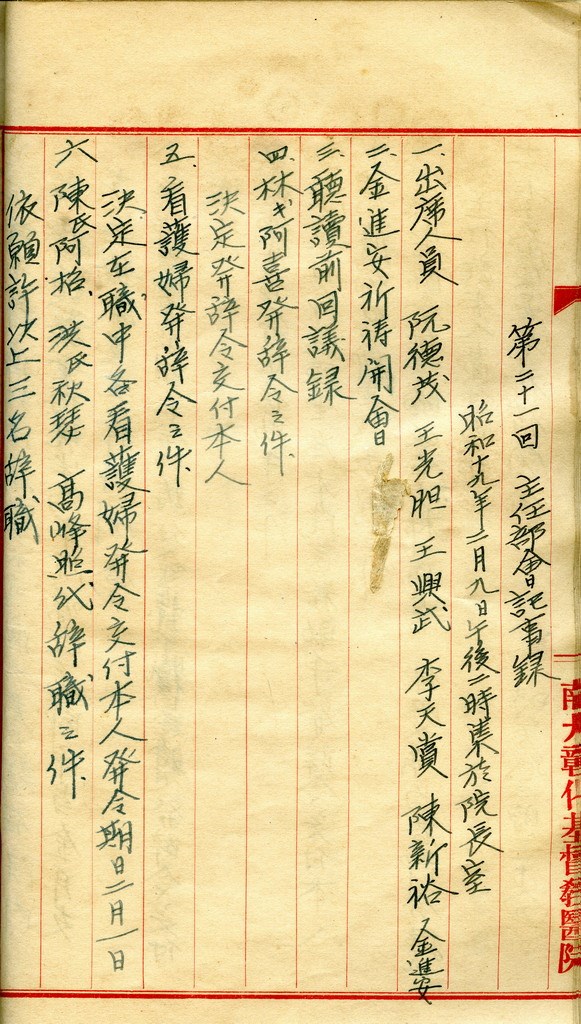 第二十一回 主任部會記事錄
昭和十九年二月九日午後二時集於院長室
一、出席人員 阮德茂 王光胆 王興武 李天賞 陳新裕 金進安
二、金進安祈禱開會
三、聽讀前回議録
四、林氏阿喜発辞令之件、
決定発辞令交付本人
五、看護婦発辞令之件、
決定在職中各看護婦発令交付本人発令期日二月一日
六、陳氏阿格、洪氏秋琴 高峰照代辞職之件、
依願許次上三名辞職
彰化基督教醫院